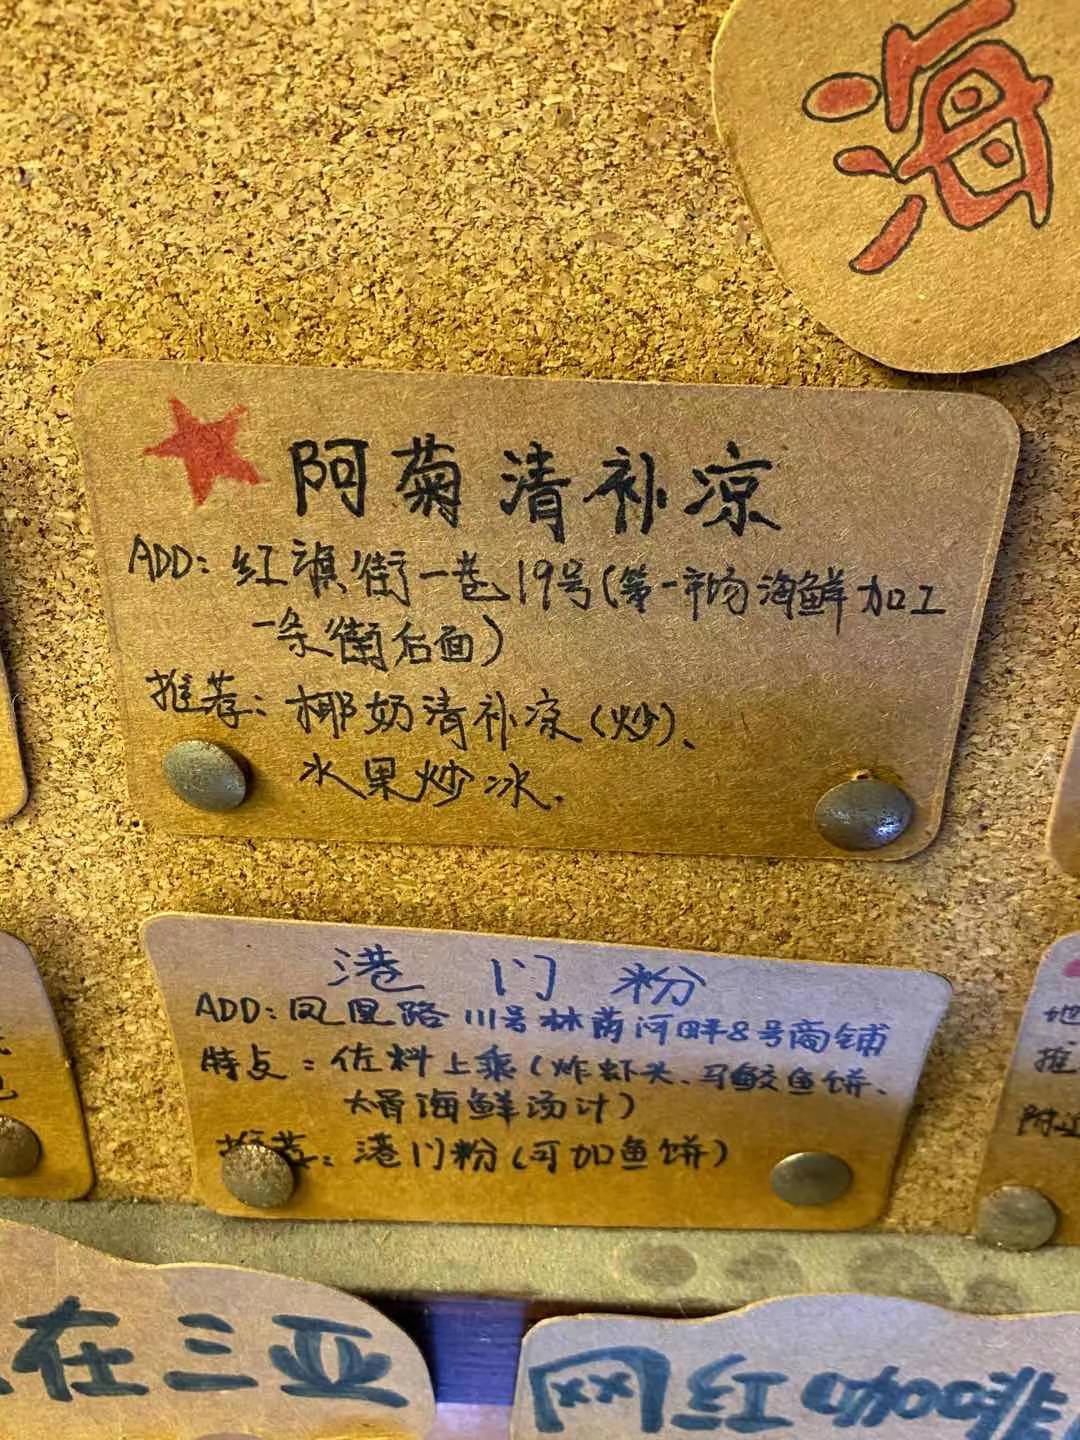 海
阿菊清补凉
ADD: 红旗街一巷19号(第一市场海鲜加工
一条街后面)
推荐: 椰奶清补凉(炒)、
水果炒冰.
港门粉
ADD: 凤凰路111号林荫河畔8号商铺
特点: 佐料上乘(炸虾米、马鲛鱼饼、
大骨海鲜汤汁)
推荐: 港门粉(可加鱼饼)
地
推
附近
在三亚